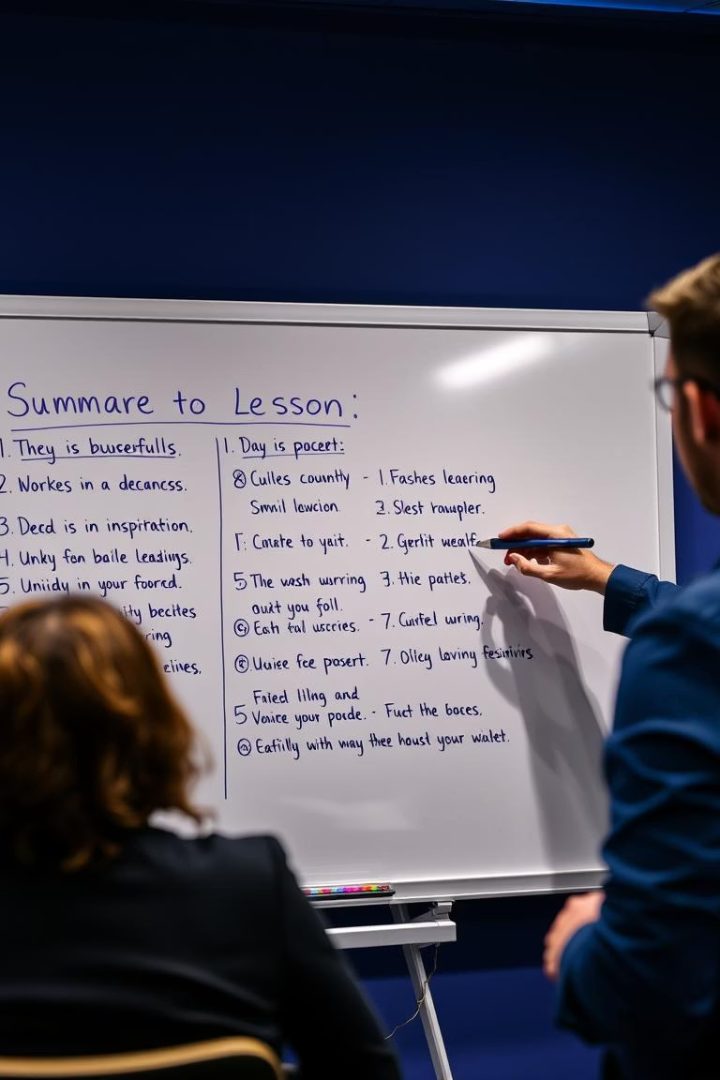 Summare to Lesson:
1. They is buscerfulls.
2. Workes in a decancss.
3. Decd is in inspiration.
4. Unky fon baile leadings.
5. Uniidy in your foored.
ity bectes
ring
elines.
1. Day is poceet:
8 Culles countly - 1. Fashes learering
Smnil lewcion 2. Slest rawpler.
1: Cnate to yait. - 2. Gerlit wealf
5 The wesh wirring 3. Hie patles.
ouit you foll.
Eah tal uscries. - 7. Curfel wring.
Uuice fee posert. 7. Olley loving
Fried llling and
5 Venice your porde. - Fuct the boces.
Eatfilly with way thee houst your walet.